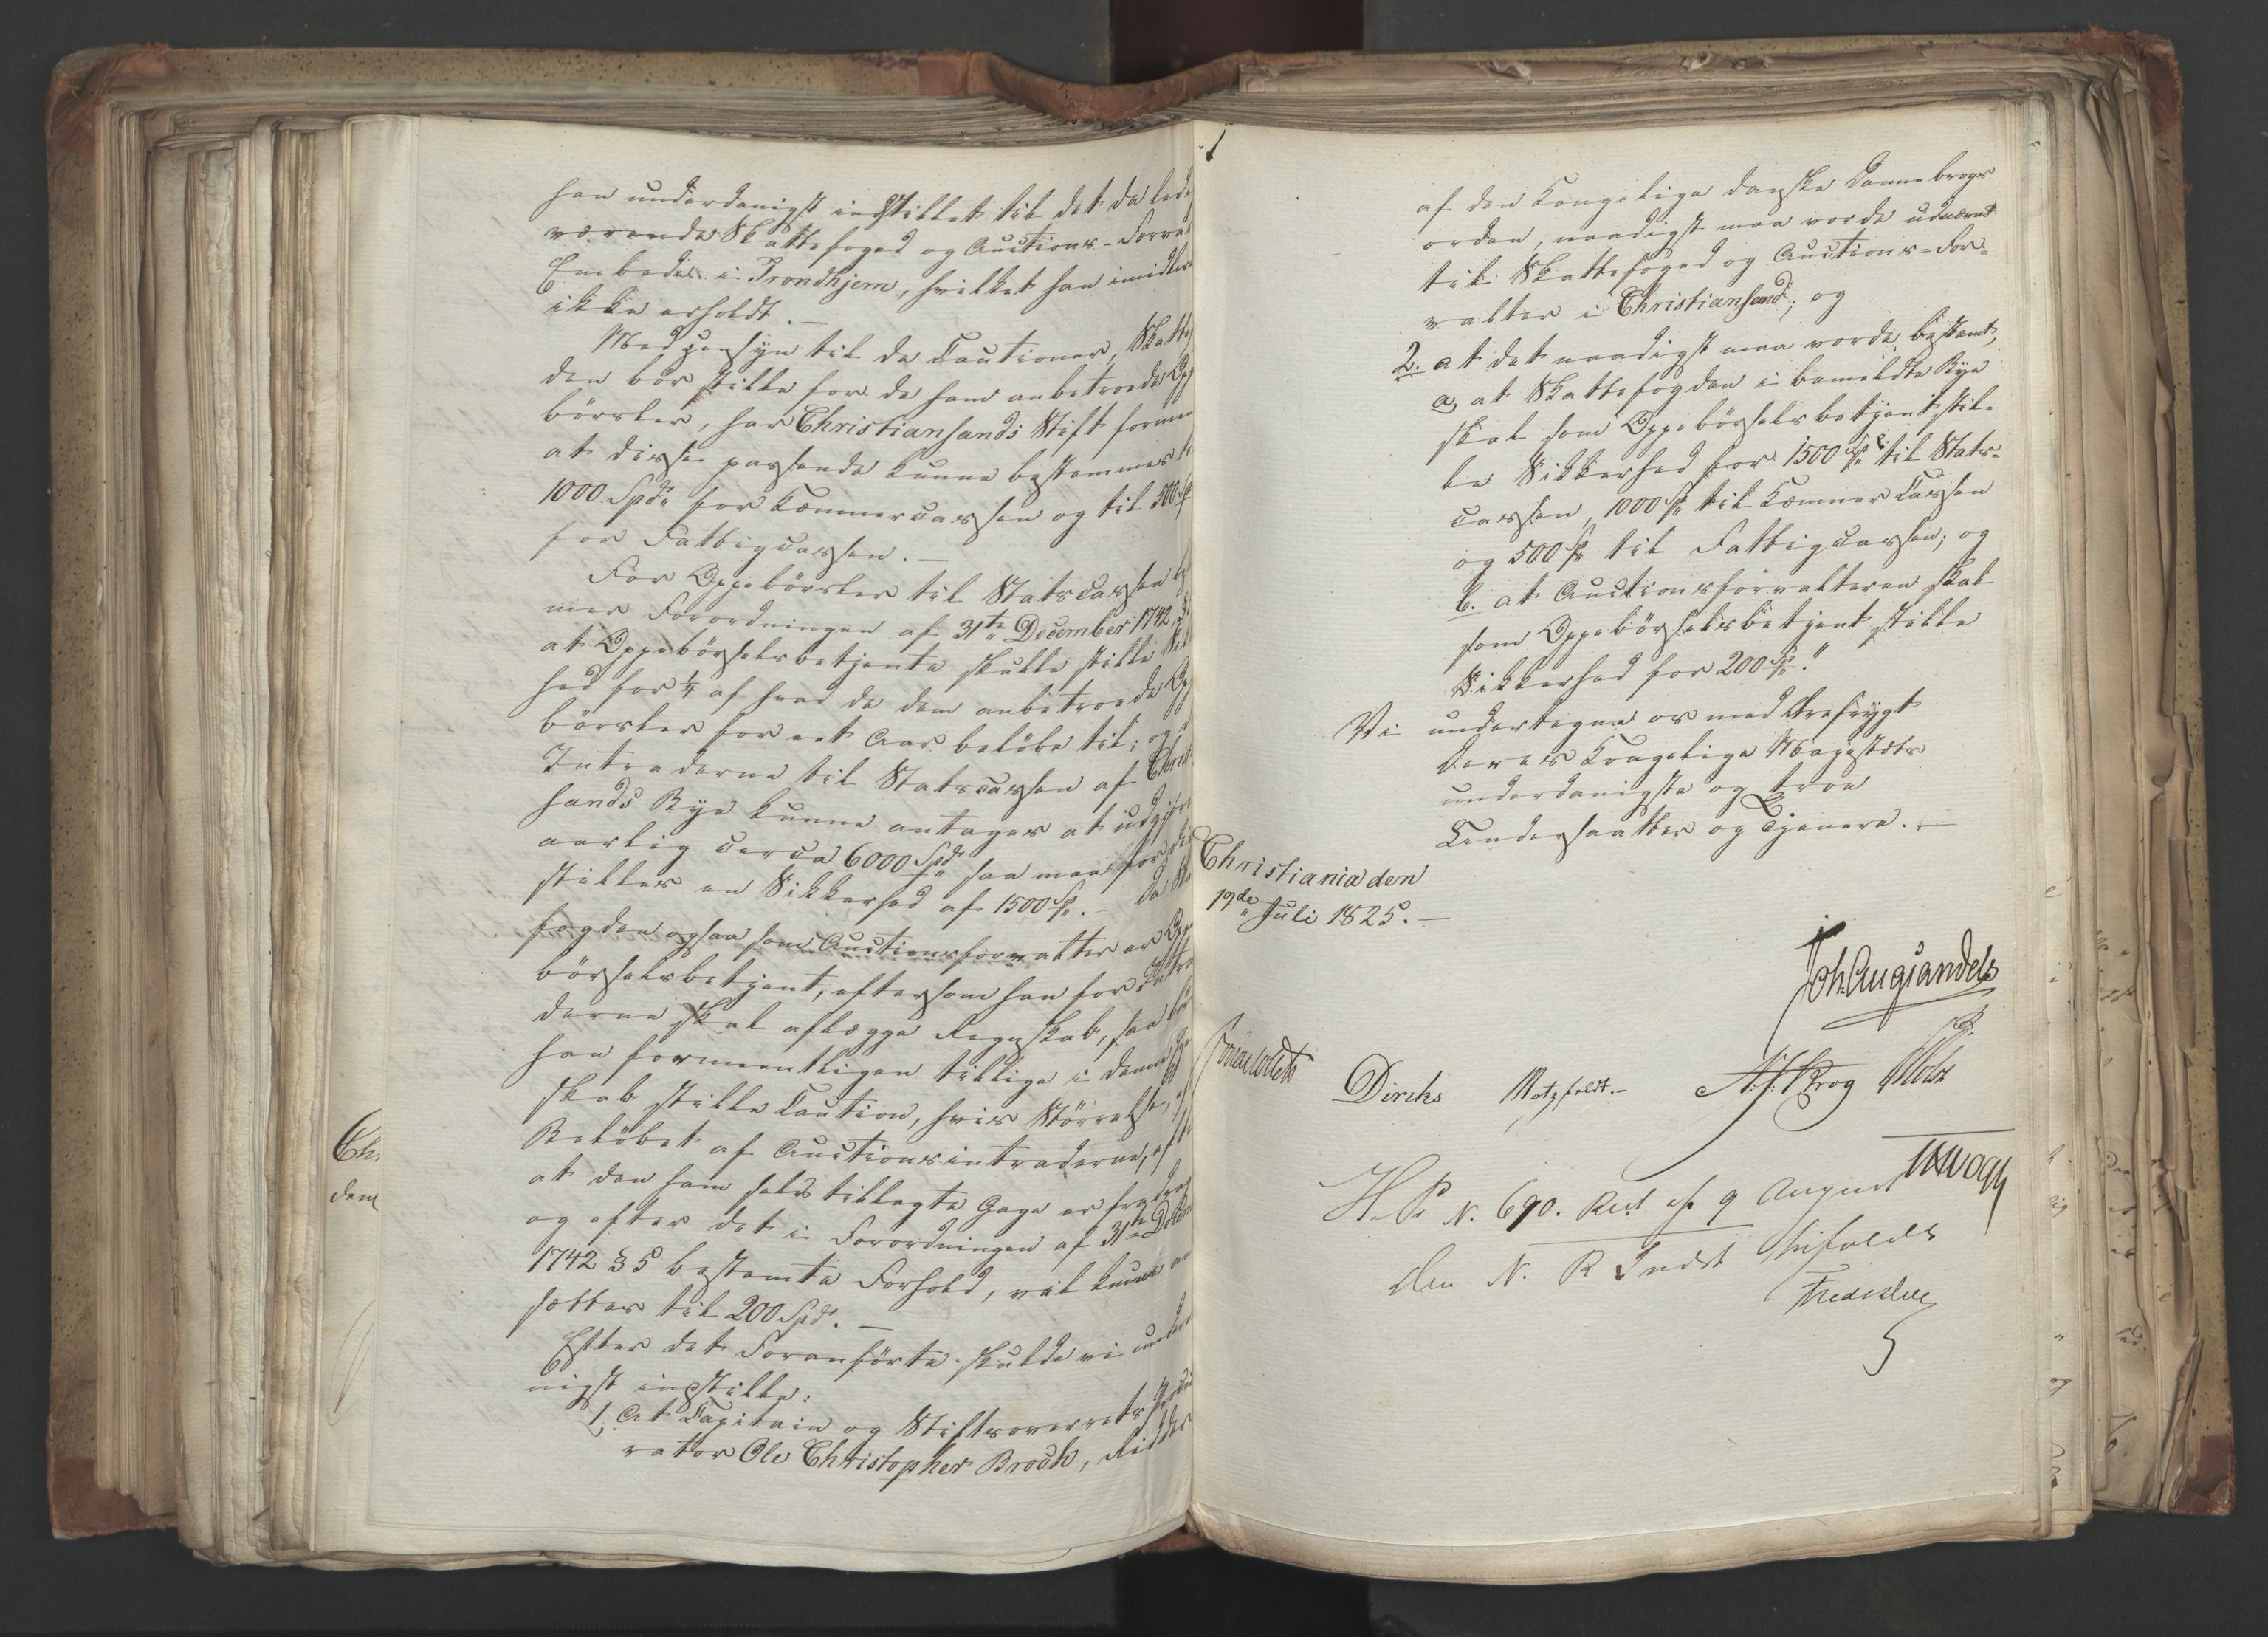 han underdanigst indstillet til det da ledig
værende Skattefoged og Auctions-Forval
Embede i Trondhjem, hvilket han imidler
ikke erholdt. —
Med Hensyn til de Cautioner, Skattefog
den bør stille for de ham anbetroede Op
börsler, har Christiansands Stift formeen
at disse passende kunne bestemmes til
1000 Spd for Kæmnercassen og til 500 Sp
for Fattigcassen. —
For Oppebörsler til Statscassen bestem
mer Forordningen af 31te December 1742,
at Oppebörselsbetjente skulle stille Sikker
hed for 1/4 af hvad de dem anbetroede Op
börsler for eet Aar beløbe til; og
Intraderne til Statscassen af Christian
sands Bye kunne antages at udgjøre
aarlig circa 6000 Spd saa maa for de
stilles en Sikkerhed af 1500 Sp. — Da Skatte
fogden ogsaa som Auctionsforvalter er Op
börselsbetjent, eftersom han for Intra
derne skal aflægge Regnskab, saa bør
han formeentligen tillige i denne Egen
skab stille Caution, hvis Størrelse,
Beløbet af Auctionsintraderne, efter
at den ham selv tillagte Gage er fradraget
og efter det i Forordningen af 31te Decem
1742 § 5 bestemte Forhold, vil kunne an
sættes til 200 Spd. —
Efter det Foranførte skulde vi underda
nigst indstille:
1, At Capitain og Stiftsoverretsprocu
rator Ole Christopher Brock, Ridder
Chr
den
af den Kongelige danske Dannebrogs
orden, naadigst maa vorde udnævnt
til Skattefoged og Auctions-For-
valter i Christiansand; og
2. at det naadigst maa vorde bestemt,
a, at Skattefogden i bemeldte Bye
skal som Oppebörselsbetjent stil-
le Sikkerhed for 1500 Sp til Stats-
cassen, 1000 Sp til Kæmner Cassen
og 500 Sp til Fattigcassen; og
b. at Auctionsforvalteren skal
som Oppebörselsbetjent stille
Sikkerhed for 200 Sp."
Vi undertegne os med Ærefrygt
Deres Kongelige Majestæts
underdanigste og troe
Undersaatter og Tjenere. —
Christiania den
19de Juli 1825. —
Joh. Aug Sandels
Diriks Motzfeldt. — Krog Holst
H. P. N. 690. Res af 9 August
Den N. R Indst bifaldes